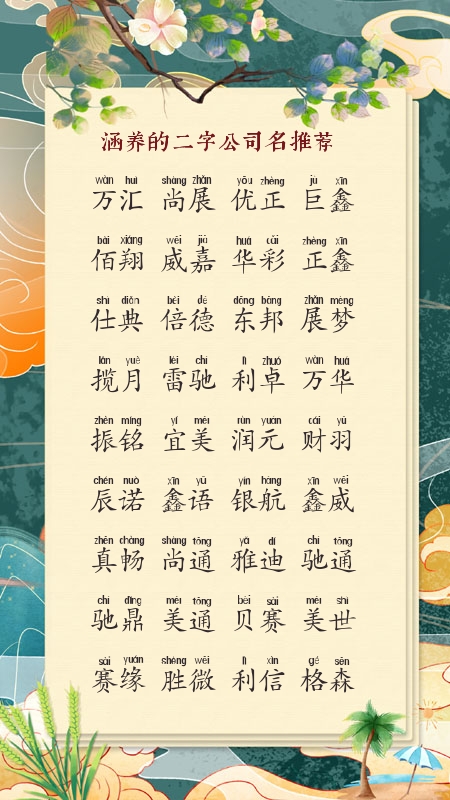 涵养的二字公司名推荐
wàn huì shàng zhǎn yōu zhèng jù xīn
万汇 尚展 优正 巨鑫
bǎi xiáng wēi jiā huá cǎi zhèng xīn
佰翔 威嘉 华彩 正鑫
shì diǎn bèi dé dōng bāng zhǎn mèng
仕典 倍德 东邦 展梦
lǎn yuè léi chí lì zhuó wàn huá
揽月 雷驰 利卓 万华
zhèn míng yí měi rùn yuán cái yǔ
振铭 宜美 润元 财羽
chén nuò xīn yǔ yín háng xīn wēi
辰诺 鑫语 银航 鑫威
zhēn chàng shàng tōng yǎ dí chí tōng
真畅 尚通 雅迪 驰通
chí dǐng měi tōng bèi sài měi shì
驰鼎 美通 贝赛 美世
sài yuán shèng wēi lì xìn gé sēn
赛缘 胜微 利信 格森